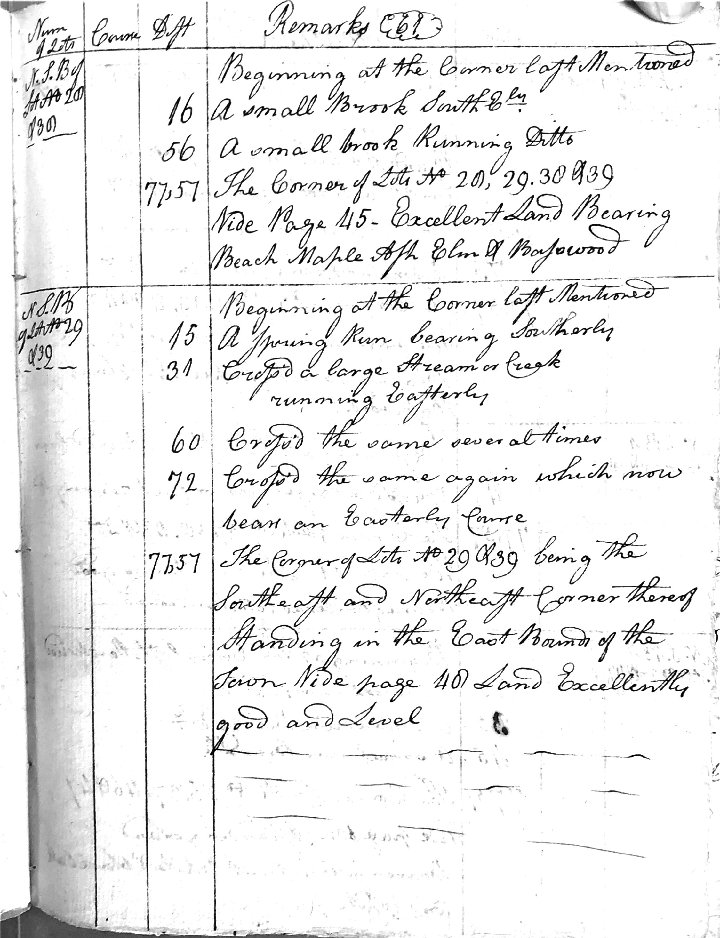 Num of Lots Course Dist Remarks (61)
N.S.B of Lot No 28 & 38
Beginning at the Corner last Mentioned
16 A small Brook South Ely.
56 A small brook Running Ditto
77,57 The Corner of Lots No 28, 29. 38 & 39
Vide Page 45 - Excellent Land Bearing
Beach Maple Ash Elm & Basswood
N S B of Lot No 29 & 39
Beginning at the Corner last Mentioned
15 A spring Run bearing Southerly
31 Cross'd a large Stream or Creek
running Easterly
60 Cross'd the same several times
72 Cross'd the same again which now
bears an Easterly Course
77,57 The Corner of Lots No 29 & 39 being the
Southeast and Northeast Corner thereof
Standing in the East Bounds of the
Town Vide page 48 Land Excellently
good and Level